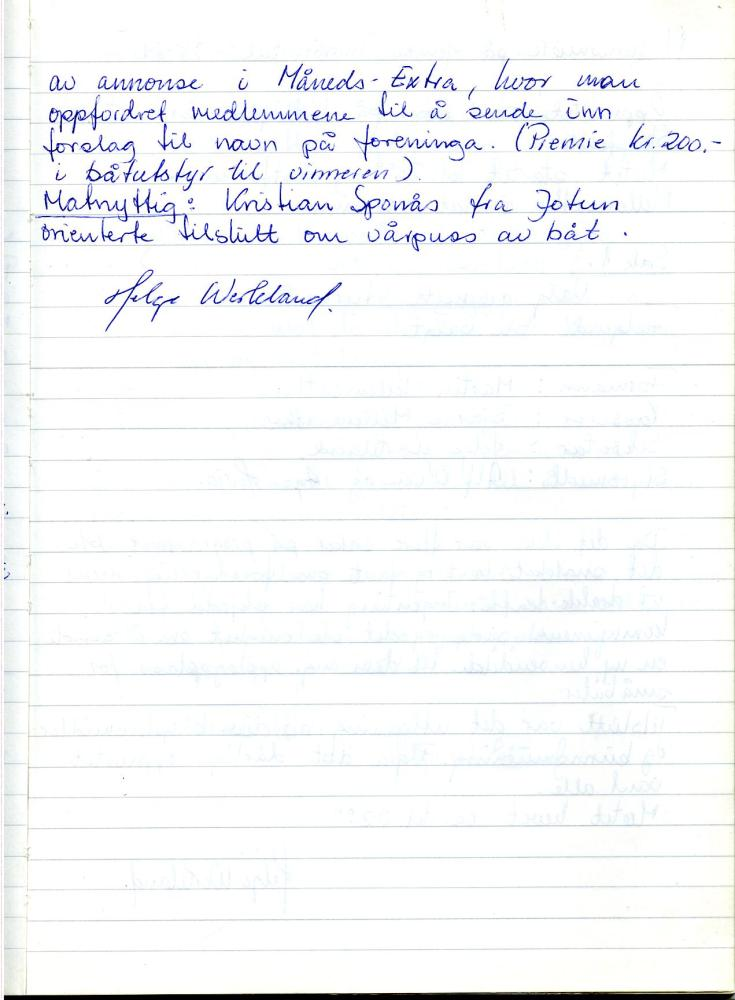 av annonse i Måneds-Extra, hvor man
oppfordret medlemmene til å sende inn
forslag til navn på foreninga. (Premie kr. 200.-
i båtutstyr til vinneren).
Matnyttig: Kristian Sponås fra Jotun
orienterte tilslutt om vårpuss av båt.
Helge Werkland.